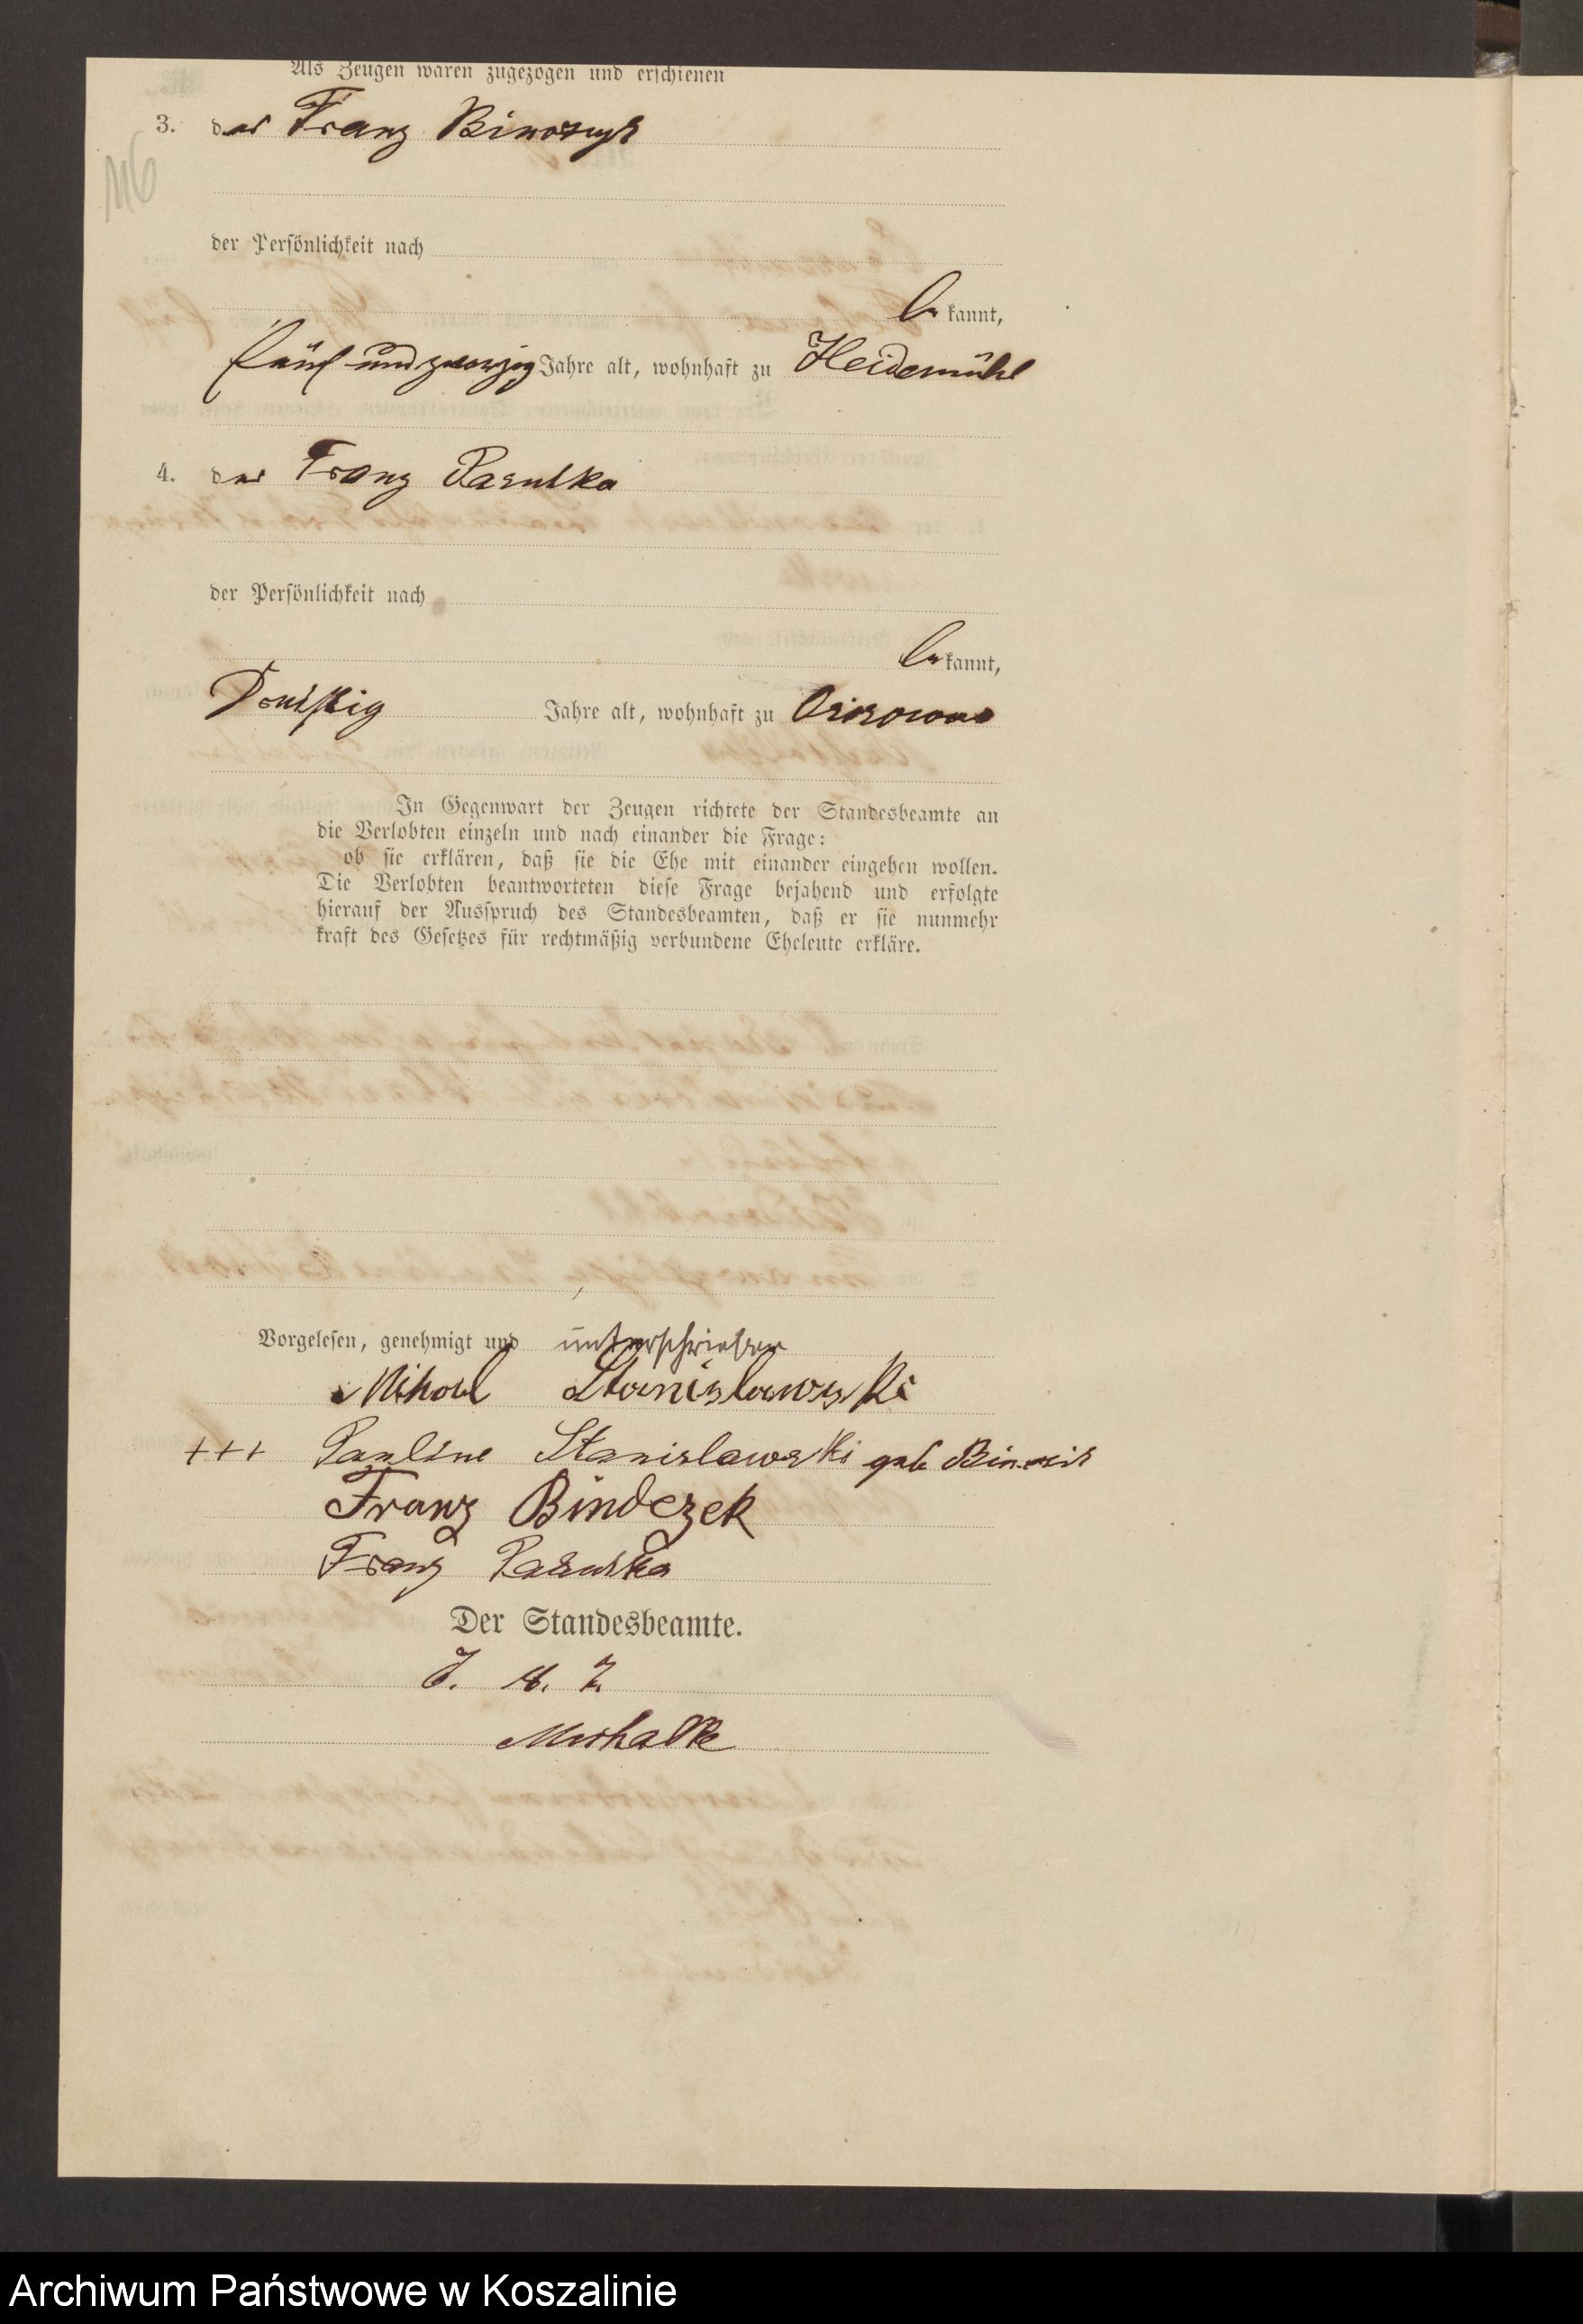 Als Zeugen waren zugezogen und erschienen
3. der Franz
116
der Persönlichkeit nach
bekannt,
fünf und zwanzig Jahre alt, wohnhaft zu Heidemühl
4. der Franz Pasulka
der Persönlichkeit nach
bekannt,
Dreißig Jahre alt, wohnhaft zu
In Gegenwart der Zeugen richtete der Standesbeamte an
die Verlobten einzeln und nach einander die Frage:
ob sie erklären, daß sie die Ehe mit einander eingehen wollen.
Die Verlobten beantworteten diese Frage bejahend und erfolgte
hierauf der Ausspruch des Standesbeamten, daß er sie nunmehr
kraft des Gesetzes für rechtmäßig verbundene Eheleute erkläre.
Vorgelesen, genehmigt und unterschrieben
Stanislawski
+++ Pauline Stanislawski geb
Franz Bindezek
Franz
Der Standesbeamte.
Archiwum Państwowe w Koszalinie